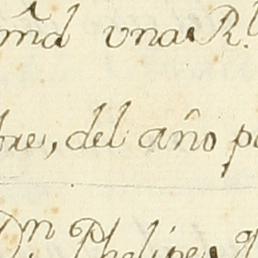 una R.l
bre, del año
Dn Phelipe